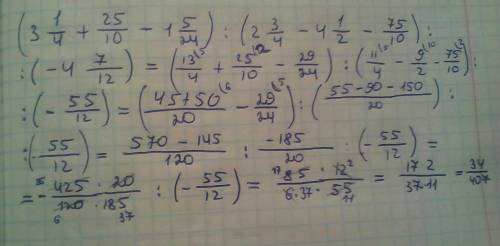 (3 1/4 + 25/10 − 1 5/24) : (2 3/4 − 4 1/2 − 75/10) :
: (−4 7/12) = (13/4 ⁵ + 25/10 − 29/24) : (11/4 ⁵ − 9/2 ¹⁰ − 75/10 ²) :
: (− 55/12) = (45+50/20 ⁶ − 29/24 ⁵) : (55−90−150/20) :
: (− 55/12) = 570−145/120 : −185/20 : (− 55/12) =
= − 425 · 20/120 · 185 : (− 55/12) = 85 · 12/6 · 37 · 55 = 17 · 2/37 · 11 = 34/407